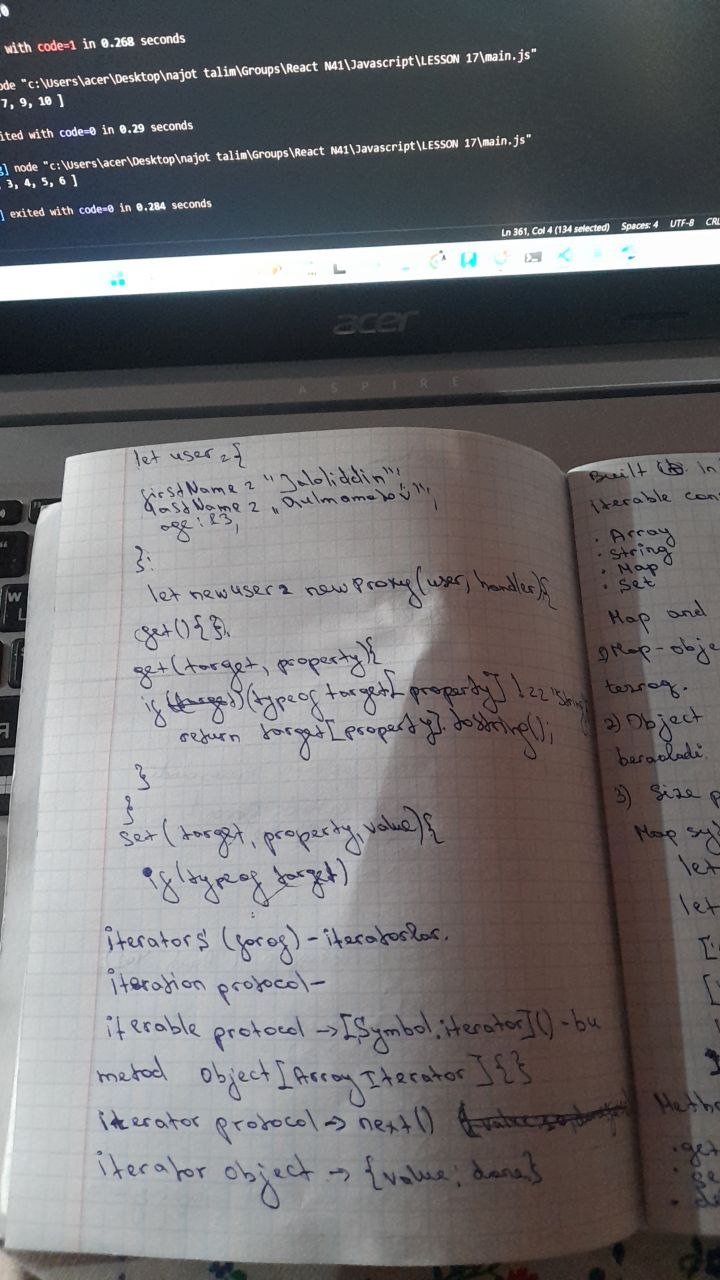 with code=1 in 0.268 seconds
ode "c:\Users\acer\Desktop\najot talim\Groups\React N41\Javascript\LESSON 17\main.js"
7, 9, 10 ]
ited with code=0 in 0.29 seconds
node "c:\Users\acer\Desktop\najot talim\Groups\React N41\Javascript\LESSON 17\main.js"
3, 4, 5, 6 ]
] exited with code=0 in 0.284 seconds
Ln 361, Col 4 (134 selected) Spaces: 4 UTF-8 CRL
acer
ASPIRE
let user = {
firstName = "Jaloliddin"
lastName =
age: 23,
};
let newuser = new Proxy(user, handler){
get(){},
get(target, property){
if (typeof target[property] !== 'String
return target[property].toString();
}
}
set(target, property, value){
if(typeof target)
iterators (gorog) - iteratorlar.
iteration protocol-
iterable protocol → [Symbol.iterator]() - bu
metod Object [Array Iterator] {}
iterator protocol → next()
iterator object → {value; done}
Built In
iterable con
. Array
. String
. Map
. Set
Map and
1) Map - obje
tezroq.
2) Object
beraoladi
3) Size p
Map sy
let
let
[
[
Metho
. get
. se